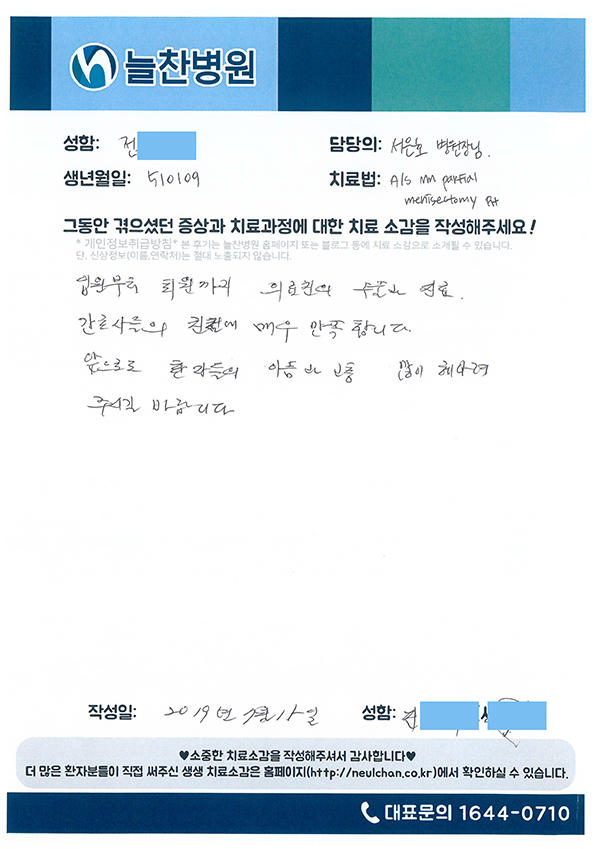 늘찬병원
성함: 전
담당의: 서은호 병원장님.
생년월일: 510109
치료법: A/s mm partial
menisectomy RH
그동안 겪으셨던 증상과 치료과정에 대한 치료 소감을 작성해주세요!
* 개인정보취급방침* 본 후기는 늘찬병원 홈페이지 또는 블로그 등에 치료 소감으로 소개될 수 있습니다.
단, 신상정보(이름,연락처)는 절대 노출되지 않습니다.
입원부터 퇴원까지 의료진의 수준과 진료.
간호사들의 친절에 매우 만족합니다.
앞으로도 환자들의 아픔과 고통 많이 헤아려
주시길 바랍니다
작성일: 2019년 월 일 성함: 전
♥소중한 치료소감을 작성해주셔서 감사합니다♥
더 많은 환자분들이 직접 써주신 생생 치료소감은 홈페이지(http://neulchan.co.kr)에서 확인하실 수 있습니다.
대표문의 1644-0710